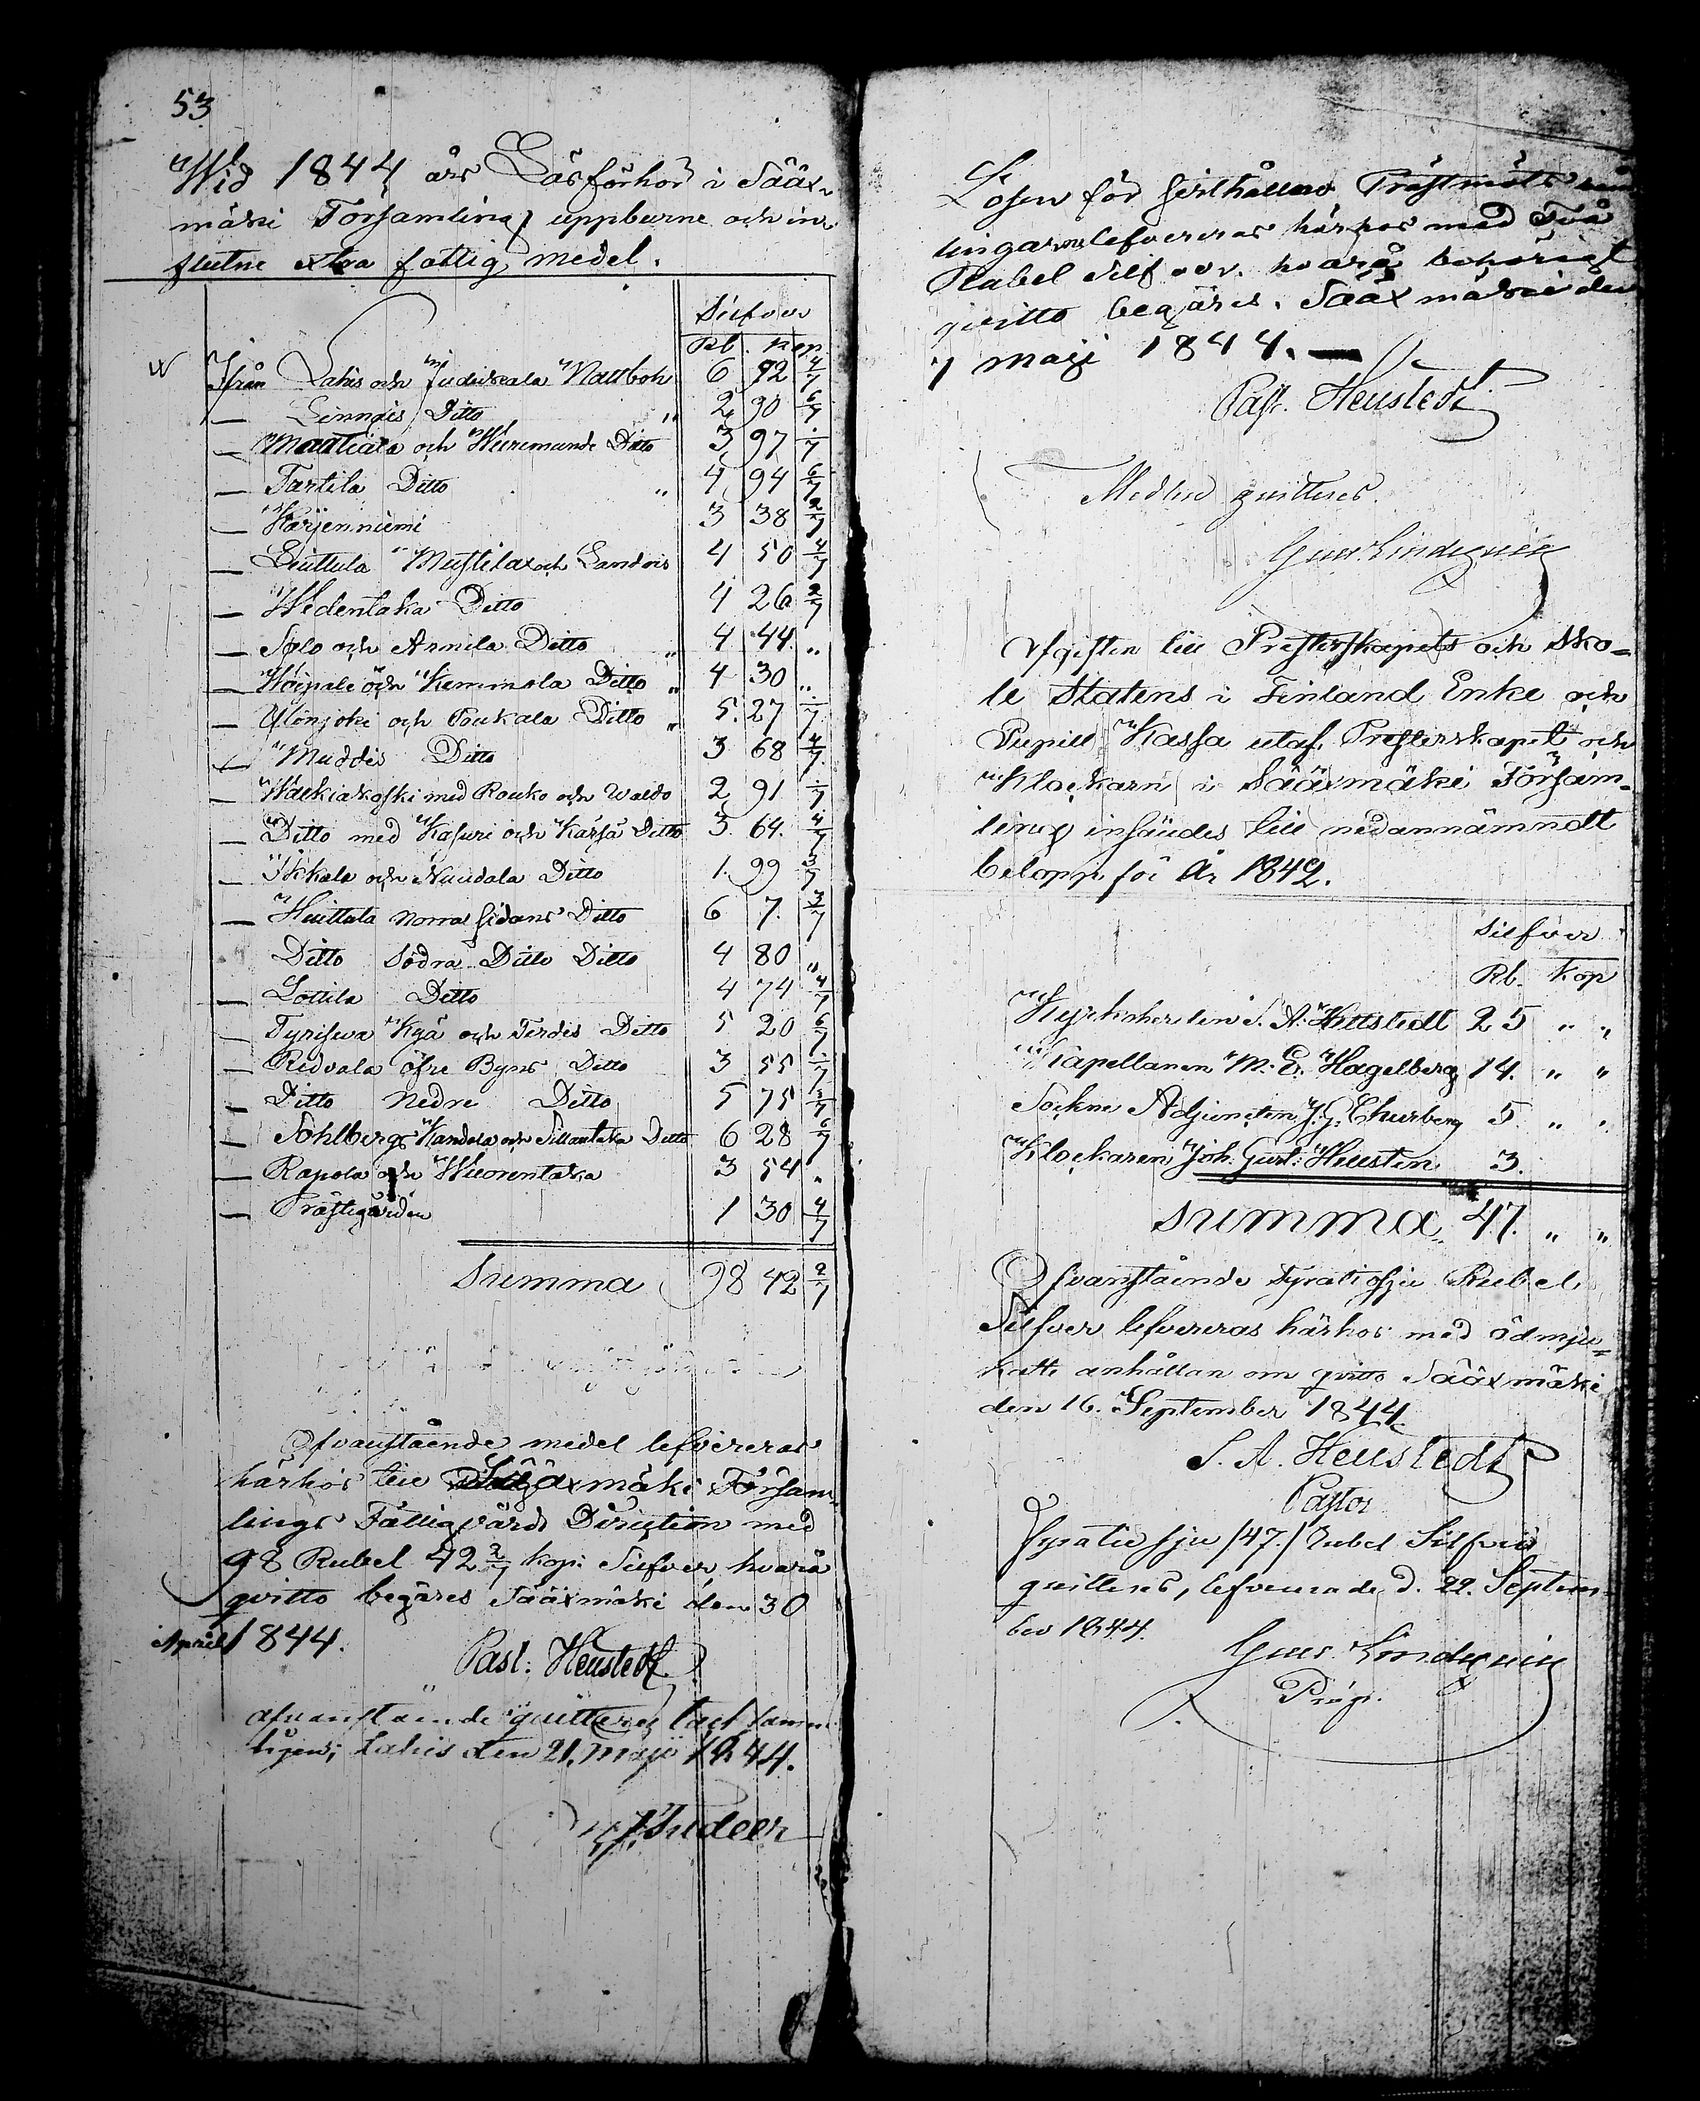 53
Wid 1844 års Läsförhör i Sääx-
mäki Församling uppburne och in-
flutne extra fattig medel.
Silfver
Rb. Kop.
Ifrån Lahis och Judikkala Mattbok 6 92 4/7
— Linnais Ditto " 2 90 6/7
— Mattiala och Ditto 3 97 1/7
— Tarttila Ditto " 4 94 6/7
— Harjenniemi 3 38 2/7
— Huittula Mustila och Landvis 4 50 4/7
— Wedentaka Ditto 4 26 2/7
— Salo och Annila Ditto " 4 44 "
— Hoipala och Kemmola Ditto " 4 30 "
— Ylönjoki och Poukala Ditto " 5. 27 1/7
— Muddis Ditto 3 68 4/7
— Walkiakoski med Rouko och Waldo 2 91 1/7
— Ditto med Kasuri och Kärjä Ditto 3. 64. 4/7
— Ikkala och Nuudala Ditto 1. 99 3/7
— Huittula norra sidans Ditto 6 7. 3/7
Ditto Södra Ditto Ditto 4 80 "
— Lottila Ditto 4 74 4/7
— Tyrisewa Kyä och Terdis Ditto 5 20 6/7
— Ridvala öfre Byns Ditto 3 55 1/7
— Ditto Nedre Ditto 5 75 1/7
— Sohlberg Kandola och Sillantaka Ditto 6 28 6/7
— Rapola och Wuorentaka 3 54 "
— Prästegården 1 30 4/7
Summa 98 42 2/7
Ofvanstående medel lefvereras
härhos till Sääxmäki Försam-
lings Fattigvårds Direction med
98 Rubel 42 2/7 kop: Silfver, hvarå
qvitto begäres Sääxmäki den 30
April 1844.
Past: Heustedt
ofvanstående quitteras tacksamme-
ligen; Lahis den 21. Maji 1844.
Judeen
Lösen för sisthållna Prästmöts
lingar lefvereras härhos med Två
Rubel Silfver. hvarå behörigt
quitto begäres. Sääxmäki den
7 Maji 1844. —
Past. Heustedt
Medlen quitteras.
Gust. Lindqvist
Afgiften till Presterskapets och Sko-
le Statens i Finland Enke och
Pupill Kassa utaf Presterskapet och
Klockarn i Sääxmäki Försam-
ling insändes till nedannämndt
belopp för År 1842.
Silfver
Rb. Kop
Kyrkoherden S. A. Heustedt 25 " "
Kapellanen M. E. Hagelberg 14. " "
Sockne Adjuncten J. G. Churberg 5 " "
Klockaren Joh. Gust: Hellsten 3.
Summa 47. " "
Ofvanstående Fyratiosju Rubel
Silfver lefvereras härhos med ödmju-
kaste anhållan om qvitto Sääxmäki
den 16. September 1844.
S. A. Heustedt
Pastor
Fyratiosju /47./ Rubel Silfver
quitteras, lefvererade d. 22. Septem-
ber 1844.
Gust. Lindqvist
Prost.